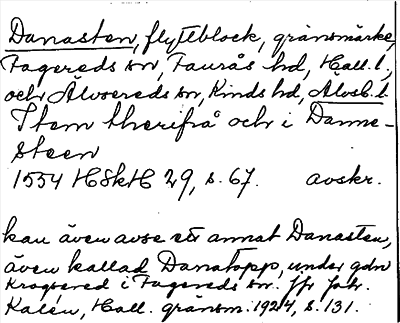 Danasten, flyttblock, gränsmärke,
Fagereds sn, Faurås hd, Hall. l.,
och Älvsereds sn, Kinds hd, Älvsb. l.
Item therifrå och i Danne-
steen
1554 HSkH 29, s. 67. avskr.
kan även avse ett annat Danasten,
även kallad Danatopp, under gdn
Krogsered i Fagereds sn. Jfr Joh.
Kalén, Hall. gränsm. 1924, s. 131.